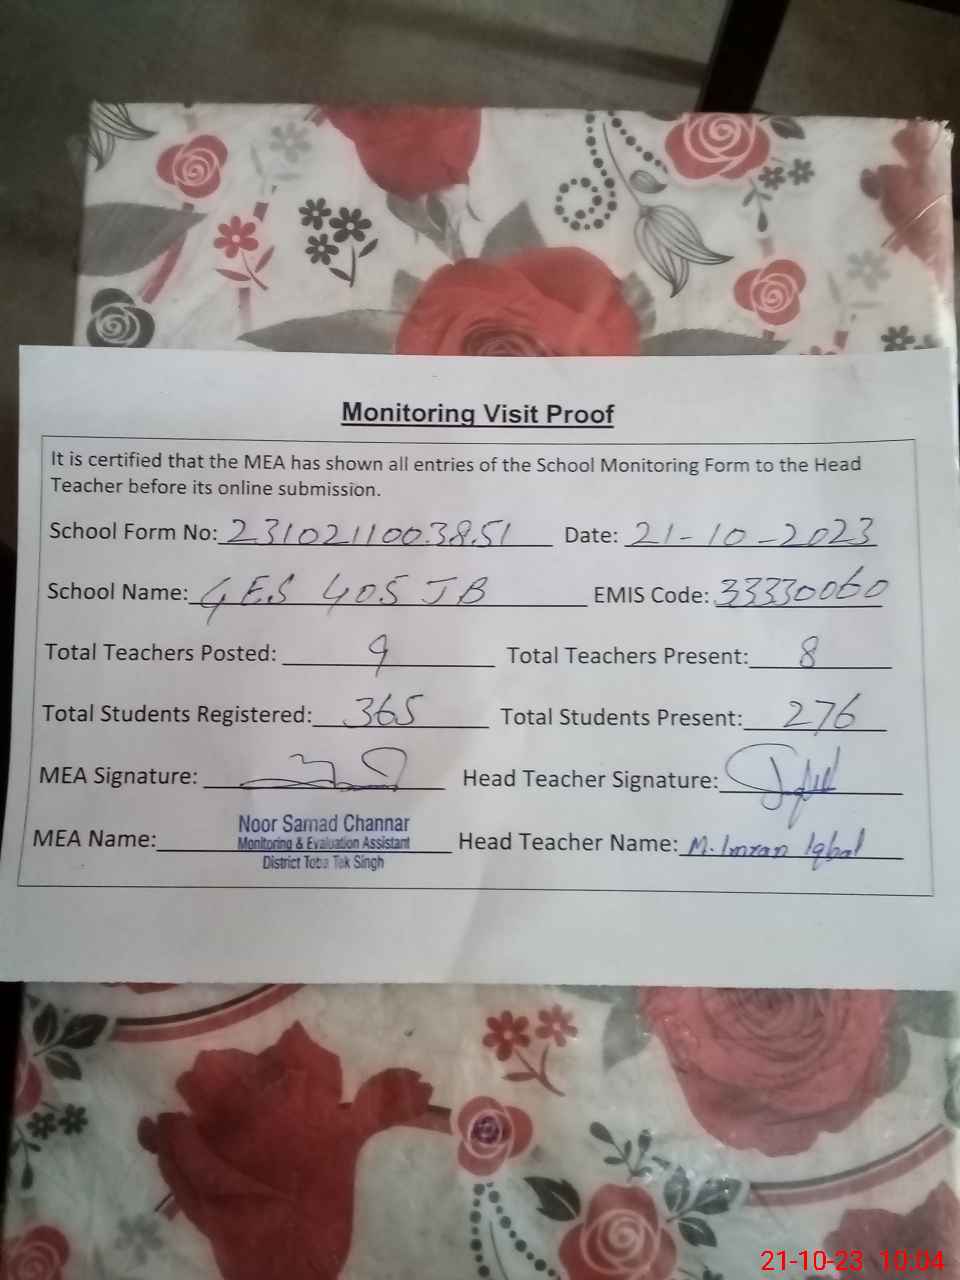 Monitoring Visit Proof
It is certified that the MEA has shown all entries of the School Monitoring Form to the Head
Teacher before its online submission.
School Form No: 2310211003851 Date: 21-10-2023
School Name: GES 405 JB EMIS Code: 33330060
Total Teachers Posted: 9 Total Teachers Present: 8
Total Students Registered: 365 Total Students Present: 276
MEA Signature: Head Teacher Signature:
MEA Name: Noor Samad Channar Head Teacher Name: M. Imran Iqbal
Monitoring & Evaluation Assistant
District Toba Tek Singh
21-10-23 10:04